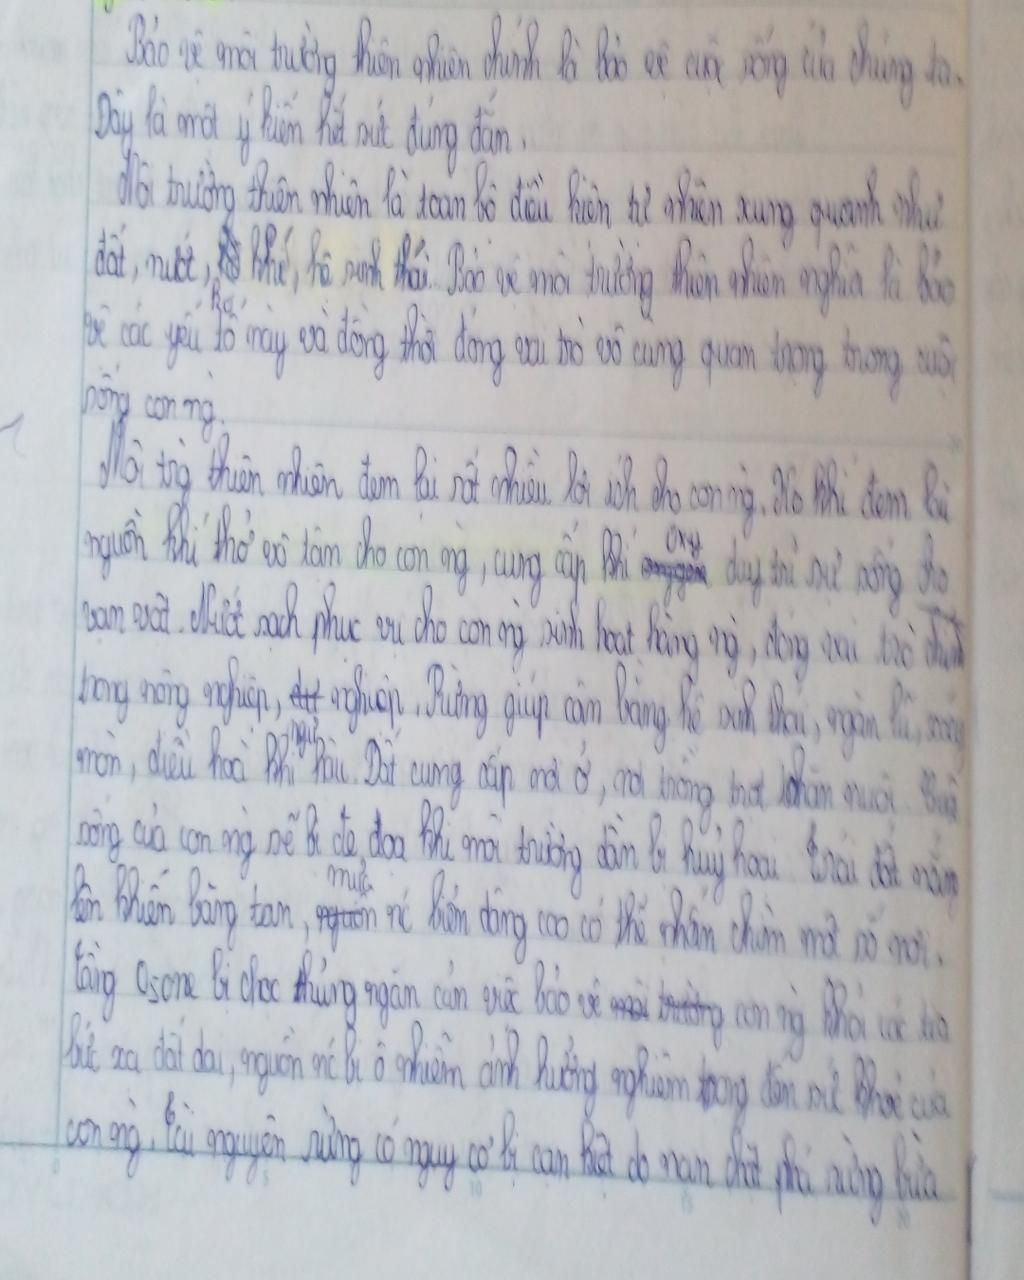 Bảo vệ môi trường thiên nhiên chính là bảo vệ cuộc sống của chúng ta.
Đây là một ý kiến hết sức đúng đắn.
Môi trường thiên nhiên là toan bộ điều kiện tự nhiên xung quanh như
đất, nước, khí, hệ sinh thái. Bảo vệ môi trường thiên nhiên nghĩa là bảo
vệ các yếu tố này và đồng thời đóng vai trò vô cùng quan trọng trong cuộc
sống con ng.
Môi trg thiên nhiên đem lại rất nhiều lợi ích cho con ng. Nó khi đem lại
nguồn khí thở vô tâm cho con ng, cung cấp khí oxy duy trì sự sống cho
vạn vật. Nước sạch phục vụ cho con ng sinh hoạt hằng ng, đóng vai trò chính
trong nông nghiệp, nghiệp. Rừng giúp cân bằng hệ sinh thái, ngăn lũ, xói
mòn, điều hoà khí hậu. Đất cung cấp nơi ở, nơi trồng trọt chăn nuôi. Cuộc
sống của con ng sẽ bị đe doạ khi môi trường dần bị huỷ hoại. Trái đất nóng
lên khiến băng tan, mực nc biển dâng cao có thể nhấn chìm một số nơi.
Tầng Osone bị chọc thủng ngăn cản việc bảo vệ con ng khỏi các tia
bức xạ đất đai, nguồn nc bị ô nhiễm ảnh hưởng nghiêm trọng đến sức khoẻ của
con ng. Tài nguyên rừng có nguy cơ bị cạn kiệt do nạn chặt phá rừng bừa